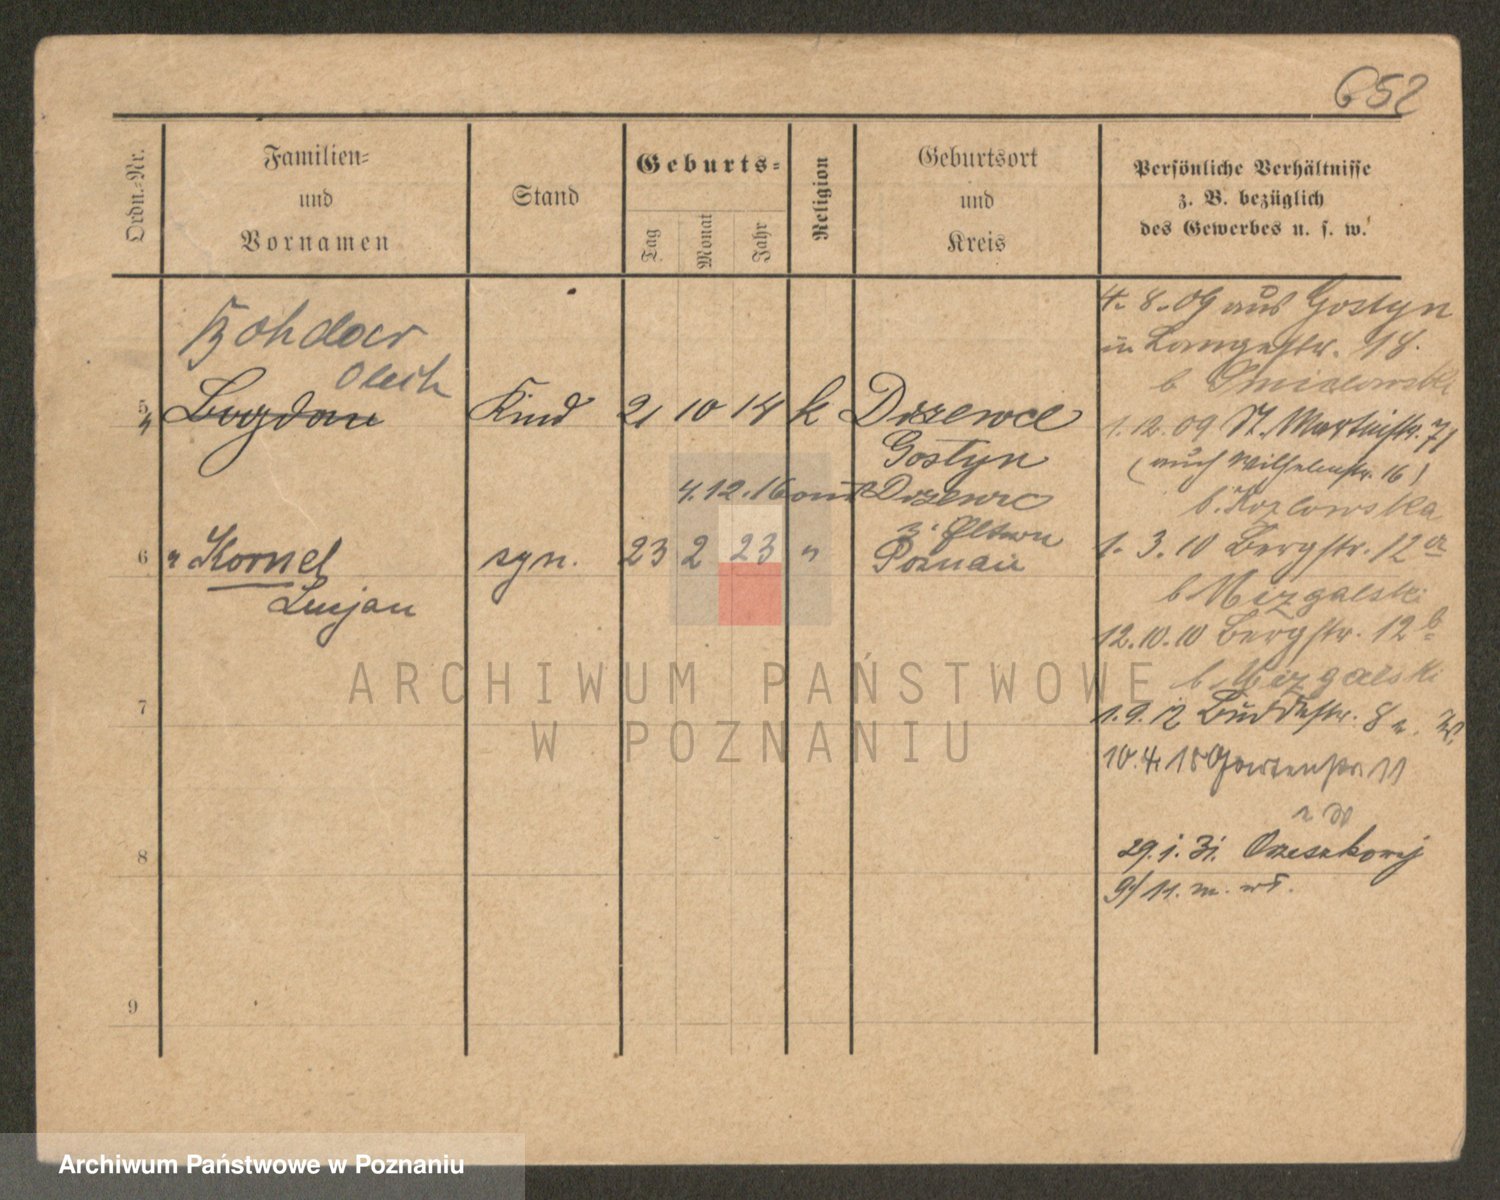 652
Ordn.-Nr.
Familien-
und
Vornamen
Stand
Geburts-
Tag
Monat
Jahr
Religion
Geburtsort
und
Kreis
Persönliche Verhältnisse
z. B. bezüglich
des Gewerbes u. s. w.
Bohdar
Olech
5 Bogdan Kind 21 10 14 k Drzewce
Gostyn
4.12.16 Drzewce
z. Eltern
6 " Kornel syn. 23 2 23 " Poznań
Lucjan
7
8
9
4. 8. 09 aus Gostyn
in Langestr. 18.
b Smialowski
1. 12. 09 St. Martinstr. 71
(auch Wilhelmstr. 16)
b. Kozlowska
1. 3. 10 Bergstr. 12a
b Mizgalski
12.10.10 Bergstr. 12b
b. Mizgalski
1. 9. 12 Buddestr. 8
10. 4. 18 Gartenstr. 11
29. 1. 31. Orzeszkowej
9/11. m. wł.
ARCHIWUM PAŃSTWOWE
W POZNANIU
Archiwum Państwowe w Poznaniu